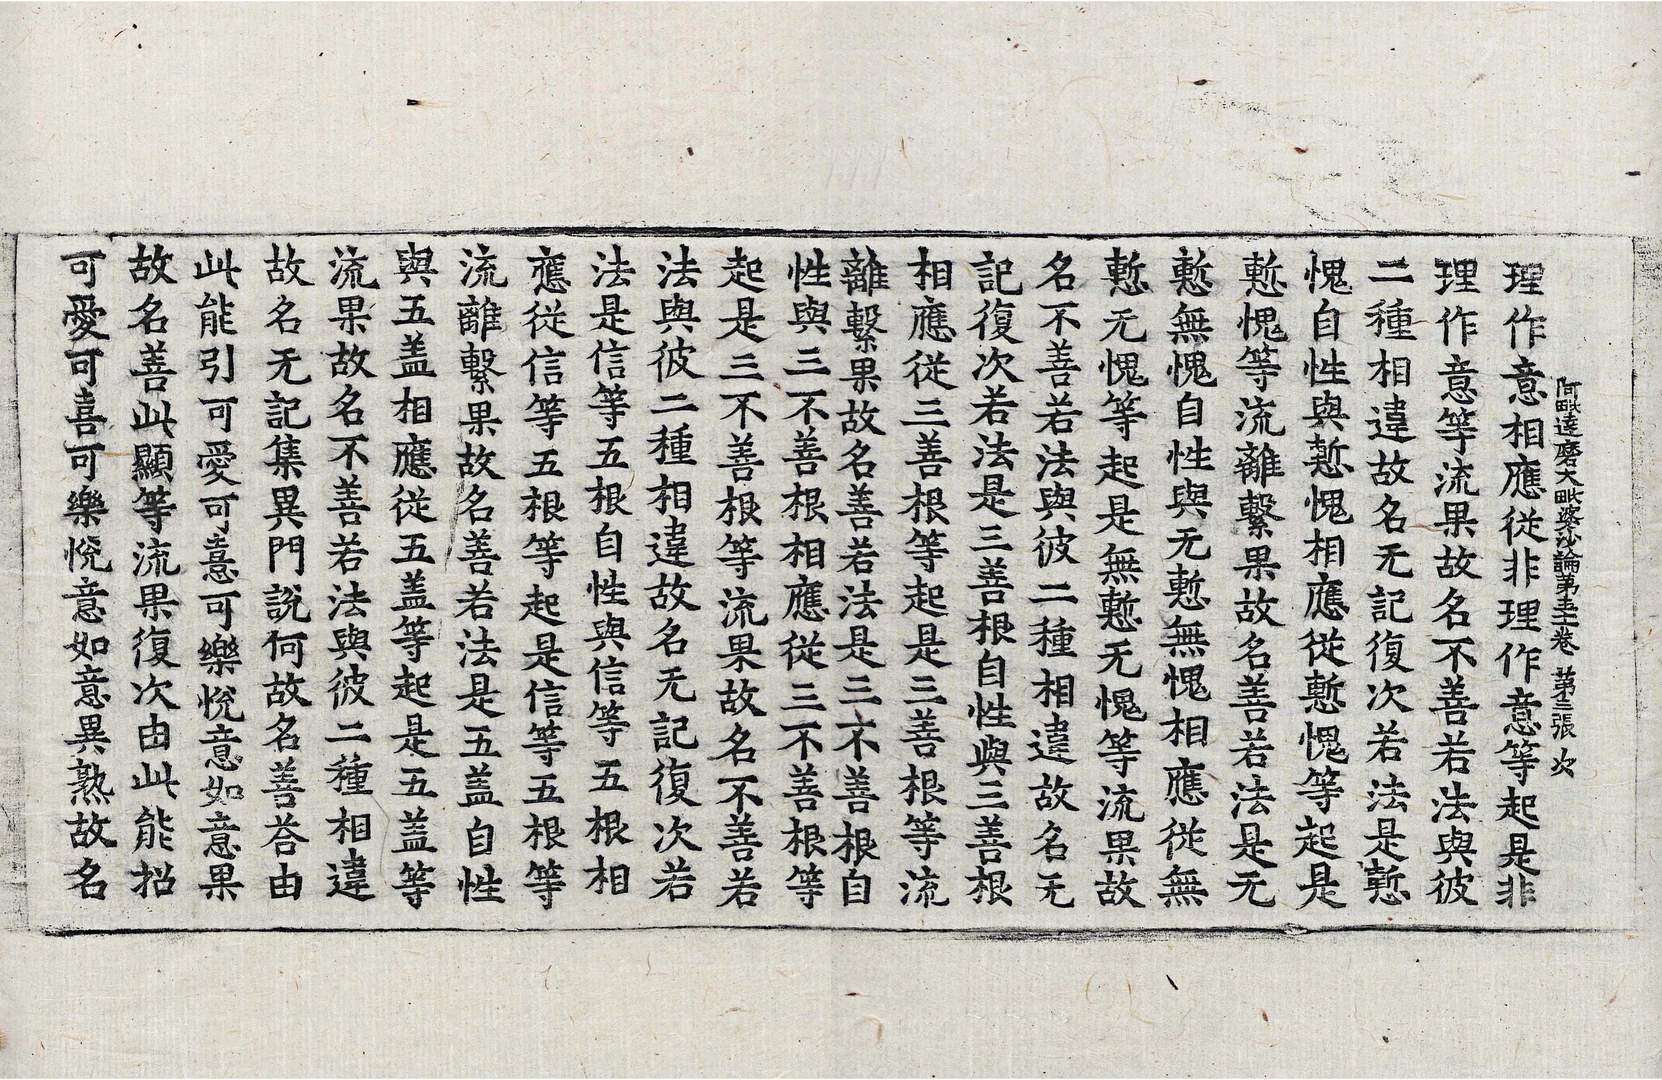 阿毗達磨大毗婆沙論第五十一卷 第二張 次
理作意相應從非理作意等起是非
理作意等流果故名不善若法與彼
二種相違故名无記復次若法是慙
愧自性與慙愧相應從慙愧等起是
慙愧等流離繫果故名善若法是无
慙無愧自性與无慙無愧相應從無
慙无愧等起是無慙无愧等流果故
名不善若法與彼二種相違故名无
記復次若法是三善根自性與三善根
相應從三善根等起是三善根等流
離繫果故名善若法是三不善根自
性與三不善根相應從三不善根等
起是三不善根等流果故名不善若
法與彼二種相違故名无記復次若
法是信等五根自性與信等五根相
應從信等五根等起是信等五根等
流離繫果故名善若法是五盖自性
與五盖相應從五盖等起是五盖等
流果故名不善若法與彼二種相違
故名无記集異門說何故名善荅由
此能引可愛可憙可樂悅意如意果
故名善此顯等流果復次由此能招
可愛可喜可樂悅意如意異熟故名